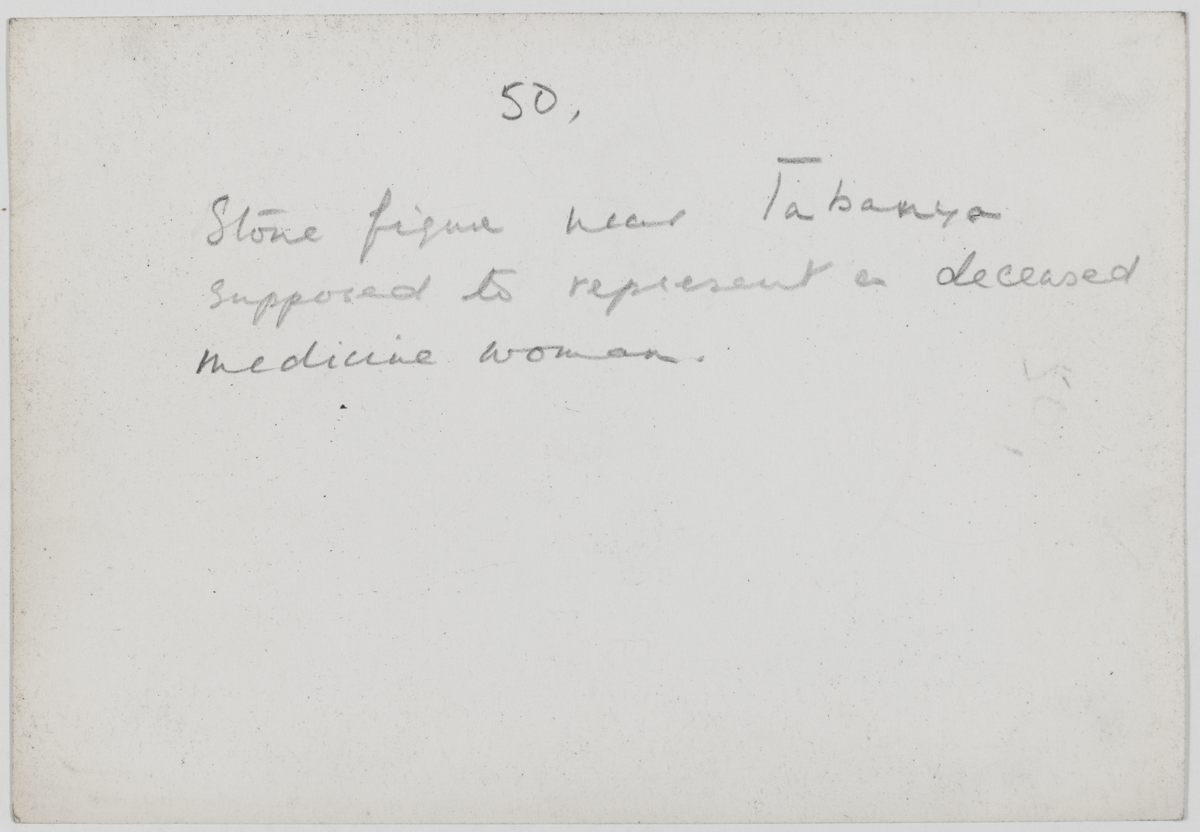 50,
Stone figure near Tabanya
supposed to represent a deceased
medicine woman.
50